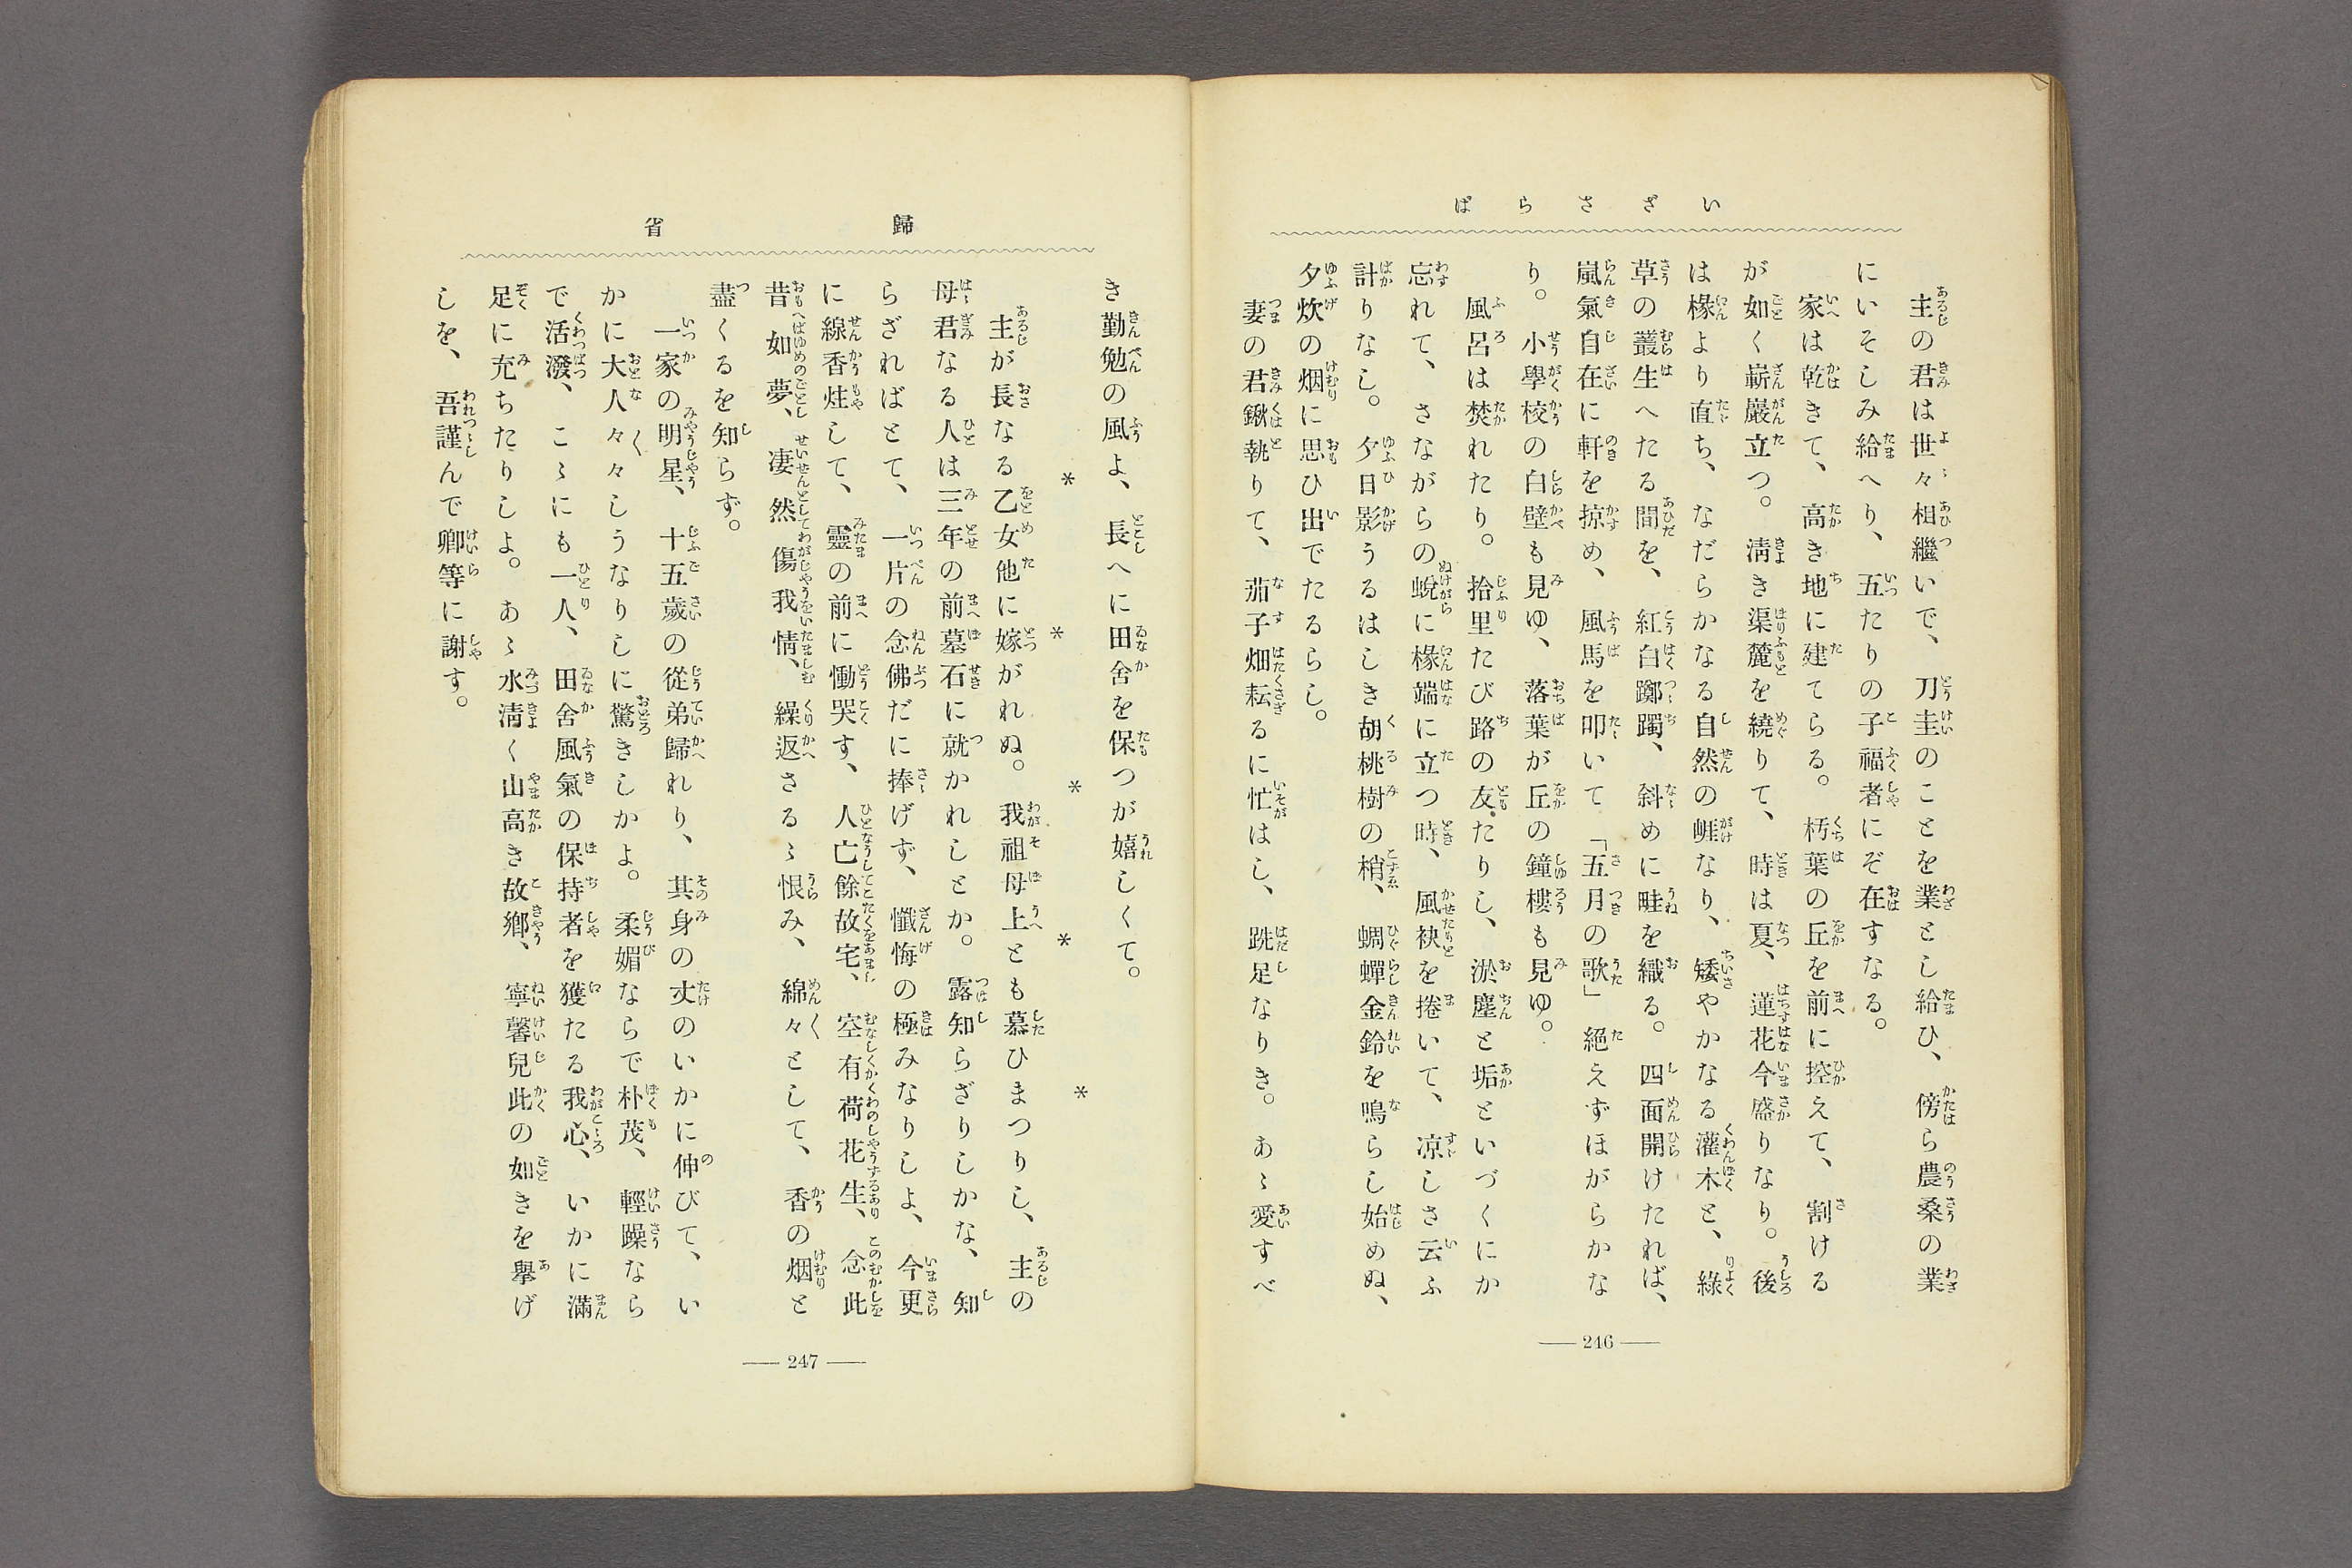 いざさらば
主の君は世々相繼いで、刀圭のことを業とし給ひ、傍ら農桑の業
にいそしみ給へり、五たりの子福者にぞ在すなる。
家は乾きて、高き地に建てらる。朽葉の丘を前に控えて、割ける
が如く嶄巖立つ。淸き渠麓を繞りて、時は夏、蓮花今盛りなり。後
は椽より直ち、なだらかなる自然の崕なり、矮やかなる灌木と、綠
草の叢生へたる間を、紅白躑躅、斜めに畦を織る。四面開けたれば、
嵐氣自在に軒を掠め、風馬を叩いて「五月の歌」絕えずほがらかな
り。小學校の白壁も見ゆ、落葉が丘の鐘樓も見ゆ。
風呂は焚れたり。拾里たび路の友たりし、淤塵と垢といづくにか
忘れて、さながらの蛻に椽端に立つ時、風袂を捲いて、凉しさ云ふ
計りなし。夕日影うるはしき胡桃樹の梢、蜩蟬金鈴を鳴らし始めぬ、
夕炊の烟に思ひ出でたるらし。
妻の君鍬執りて、茄子畑耘るに忙はし、跣足なりき。あゝ愛すべ
246
歸省
き勤勉の風よ、長へに田舍を保つが嬉しくて。
* * * * *
主が長なる乙女他に嫁がれぬ。我祖母上とも慕ひまつりし、主の
母君なる人は三年の前墓石に就かれしとか。露知らざりしかな、知
らざればとて、一片の念佛だに捧げず、懺悔の極みなりしよ、今更
に線香炷して、靈の前に慟哭す、人亡餘故宅、空有荷花生、念此
昔如夢、凄然傷我情、繰返さるゝ恨み、綿々として、香の烟と
盡くるを知らず。
一家の明星、十五歲の從弟歸れり、其身の丈のいかに伸びて、い
かに大人々々しうなりしに驚きしかよ。柔媚ならで朴茂、輕躁なら
で活潑、こゝにも一人、田舍風氣の保持者を獲たる我心、いかに滿
足に充ちたりしよ。あゝ水淸く山高き故鄕、寧馨兒此の如きを擧げ
しを、吾謹んで卿等に謝す。
247